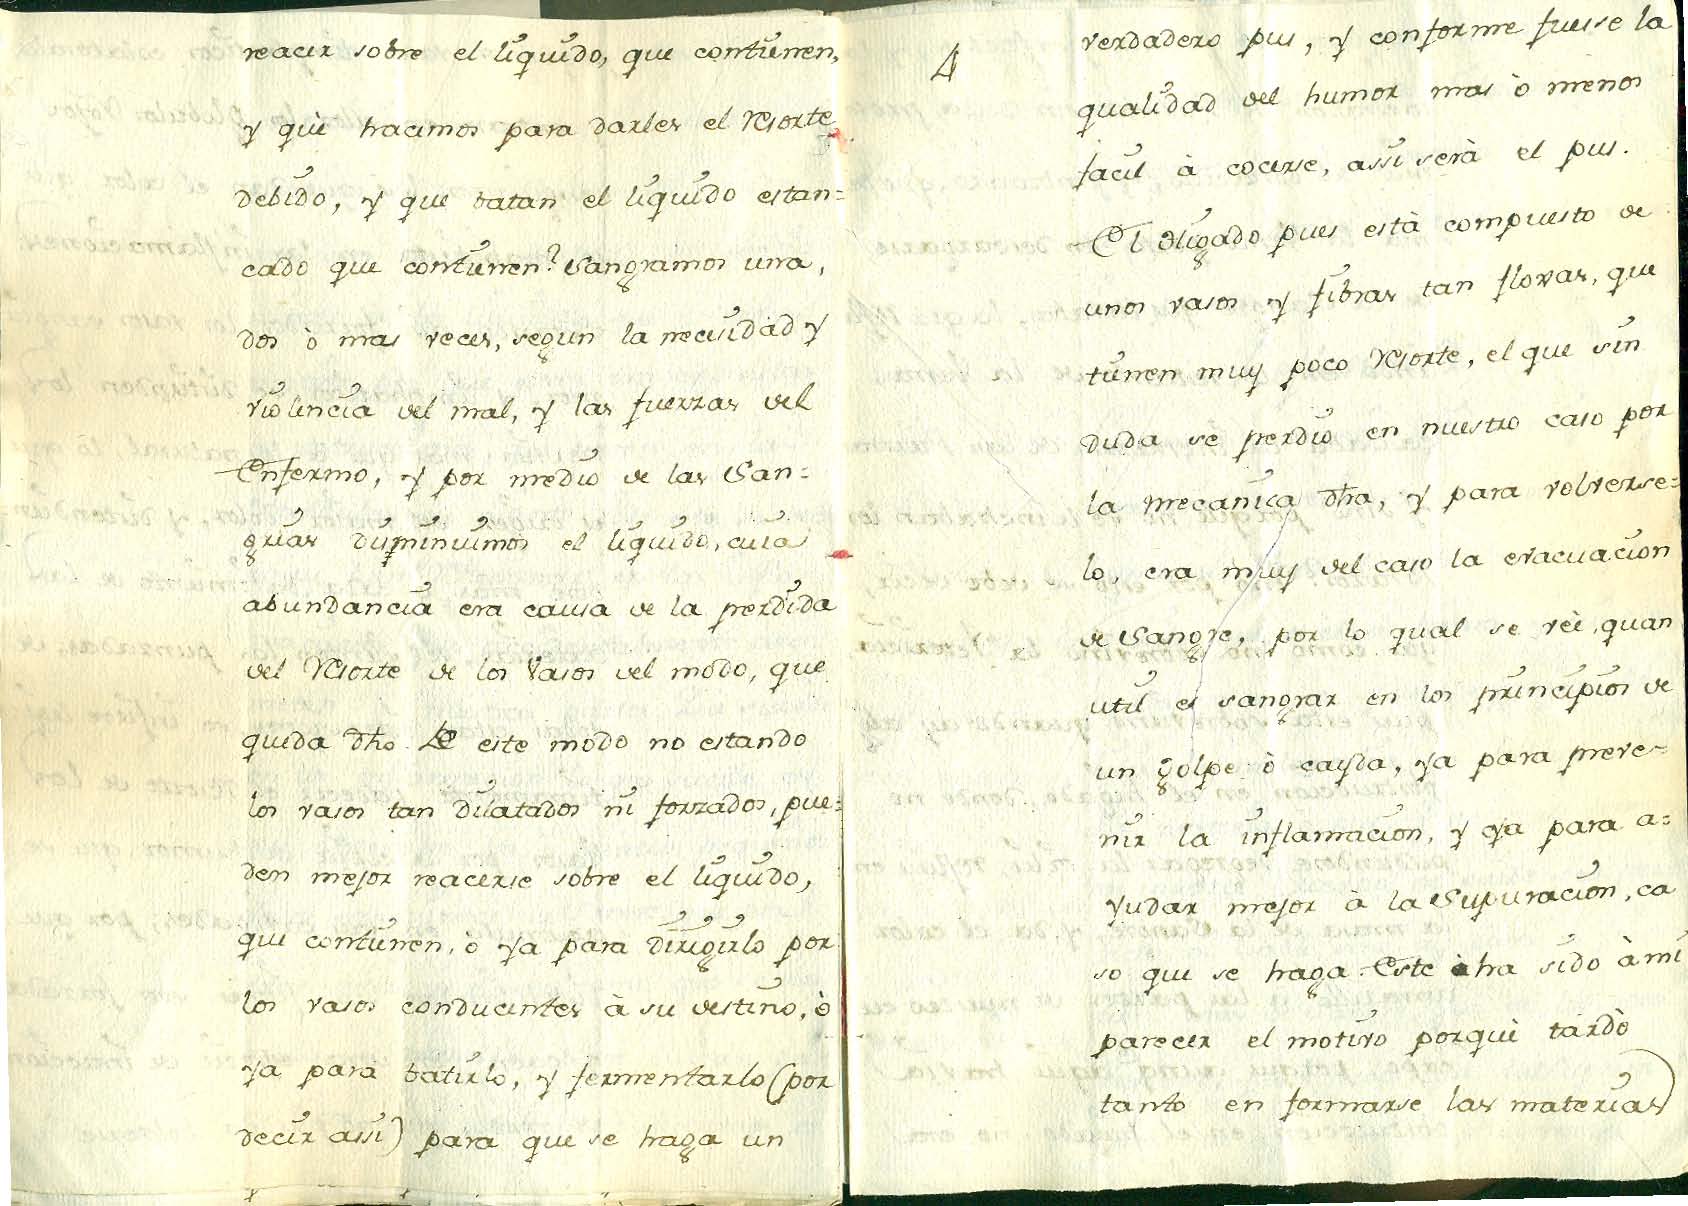 reacer sobre el liquido, que contienen,
y què hacemos para darles el resorte
debido, y que batan el liquido estan=
cado que contienen? Sangramos una,
dos ò mas veces, segun la necesidad y
violencia del mal, y las fuerzas del
Enfermo, y por medio de las San=
grias disminuimos el liquido, cuia
abundancia era causa de la perdida
del resorte de los Vasos del modo, que
queda dho. De este modo no estando
los vasos tan dilatados ni forzados, pue=
den mejor reacerse sobre el liquido,
que contienen, ò ya para dirigirlo por
los vasos conducentes à su destino, ò
ya para batirlo, y fermentarlo (por
decir assi) para que se haga un
4
verdadero pus, y conforme fuesse la
qualidad del humor mas ò menos
facil à cocerse, assi serà el pus.
El Higado pues està compuesto de
unos vasos y fibras tan floxas, que
tienen muy poco resorte, el que sin
duda se perdiò en nuestro caso por
la mecanica dha, y para volverse=
lo, era muy del caso la evacuacion
de Sangre, por lo qual se vèe, quan
util es sangrar en los principios de
un golpe ò cayda, ya para preve=
nir la inflamacion, y ya para a=
yudar mejor à la Supuracion, ca
so que se haga. Este ha sido à mi
parecer el motivo porquè tardò
tanto en formarse las materias